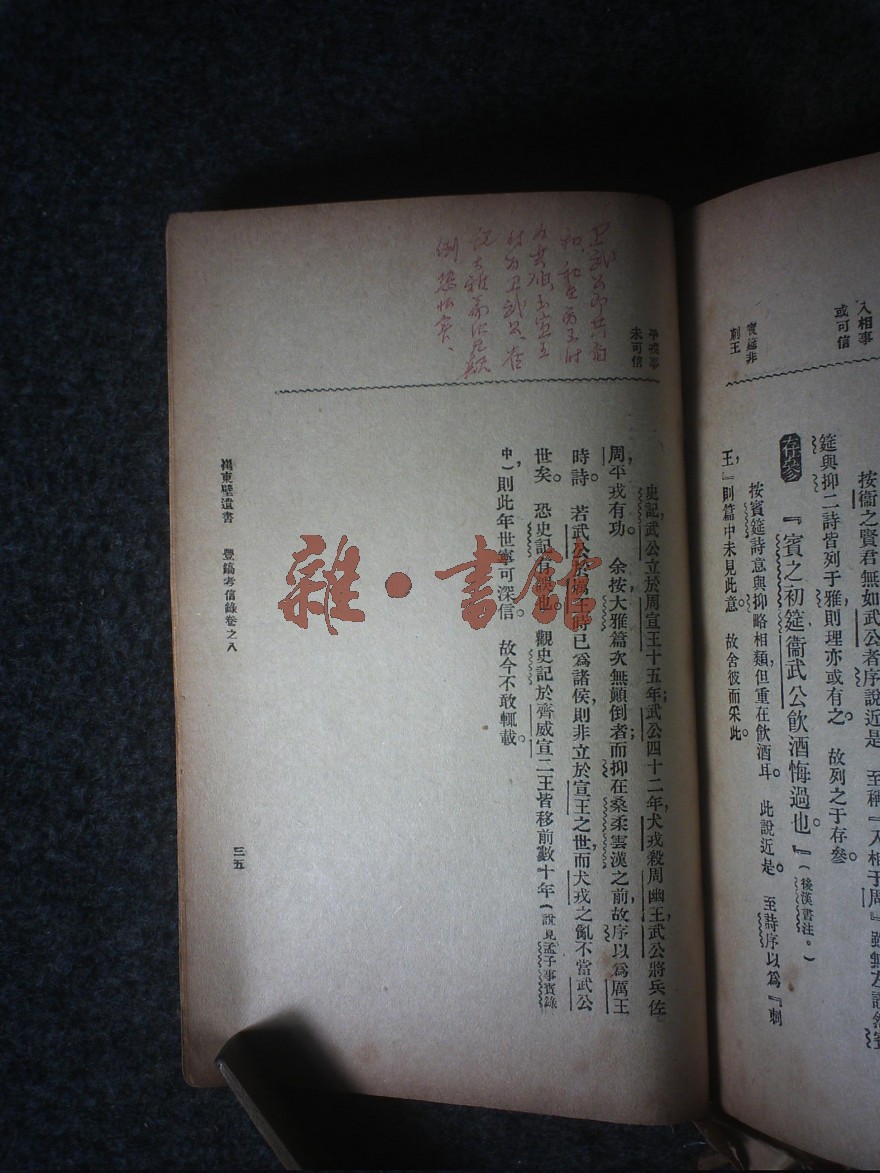 入相事
或可信
賓筵非
刺王
按衞之賢君無如武公者序說近是　至稱『入相于周』雖無左證然賓
筵與抑二詩皆列于雅則理亦或有之。　故列之于存參。
存參　『賓之初筵衞武公飲酒悔過也。』（後漢書注。）
按賓筵詩意與抑略相類，但重在飲酒耳。　此說近是。　至詩序以爲『刺
王』則篇中未見此意。　故舍彼而采此。
平戎事
未可信
衛武公即共伯
和，和在厉王时
为共伯至宣王
时为卫武公
史記，武公立於周宣王十五年；武公四十二年，犬戎殺周幽王，武公將兵佐
周平戎有功。　余按大雅篇次無顚倒者；而抑在桑柔雲漢之前，故序以爲厲王
時詩。　若武公於厲王時已爲諸侯，則非立於宣王之世，而犬戎之亂不當武公
世矣。　恐史記有誤也。　觀史記於齊威宣二王皆移前數十年（說見孟子事實錄
中，）則此年世寧可深信　故今不敢輒載。
崔東壁遺書　豐鎬考信錄卷之八
三五
雜·書館